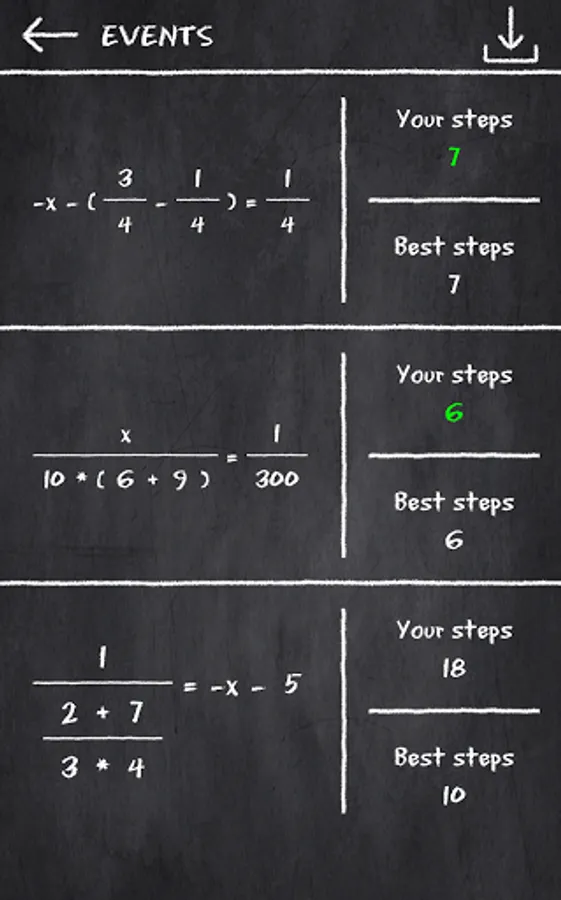 EVENTS
-x - ( 3/4 - 1/4 ) = 1/4
Your steps
7
Best steps
7
x / 10 * ( 6 + 9 ) = 1 / 300
Your steps
6
Best steps
6
1
2 + 7
3 * 4
= -x - 5
Your steps
18
Best steps
10